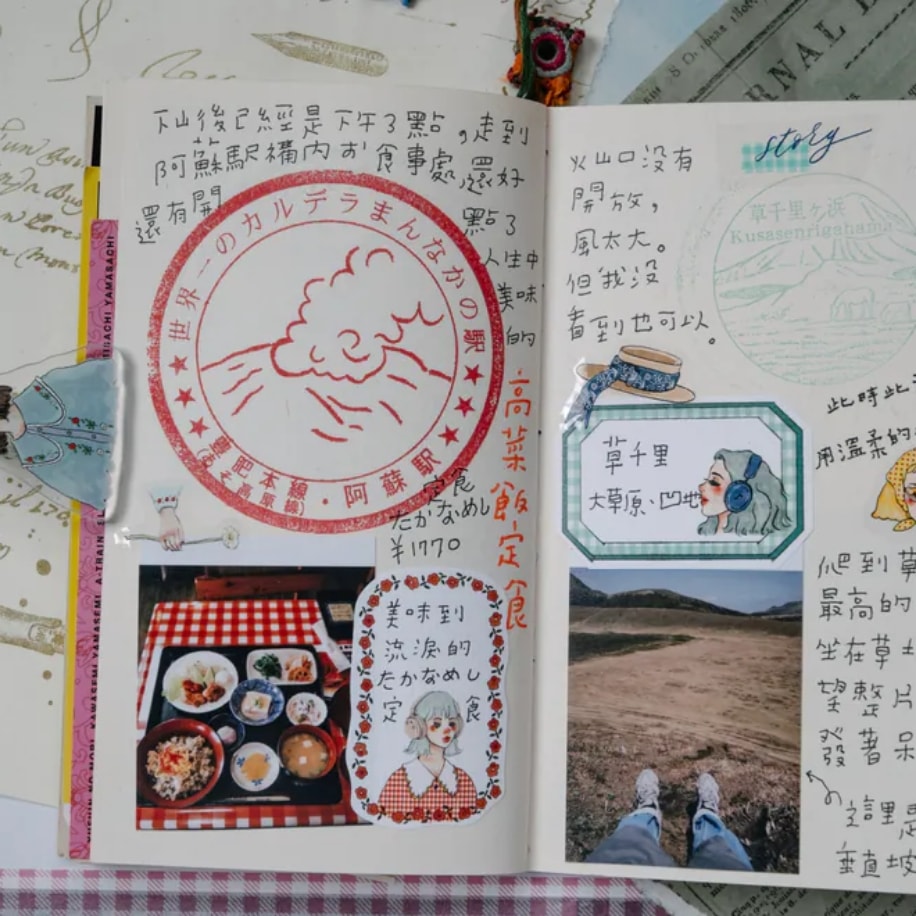 下山後已經是下午3點,走到
阿蘇駅構内お食事處,還好
還有開
點了
人生中
美味
的
高菜飯定食
世界一のカルデラまんなかの駅
豊肥本線・阿蘇駅
(あそ高原線)
定食
たかなめし
¥1770
美味到
流淚的
たかなめし
定食
story
火山口没有
開放,
風太大。
但我没
看到也可以。
草千里ヶ浜
Kusasenrigahama
草千里
大草原、凹地
此時此
用溫柔的
爬到草
最高的
坐在草
望整片
發著呆
這里是
垂直坡
KAWASEMI YAMASEMI A-TRAIN
YAMABACHI